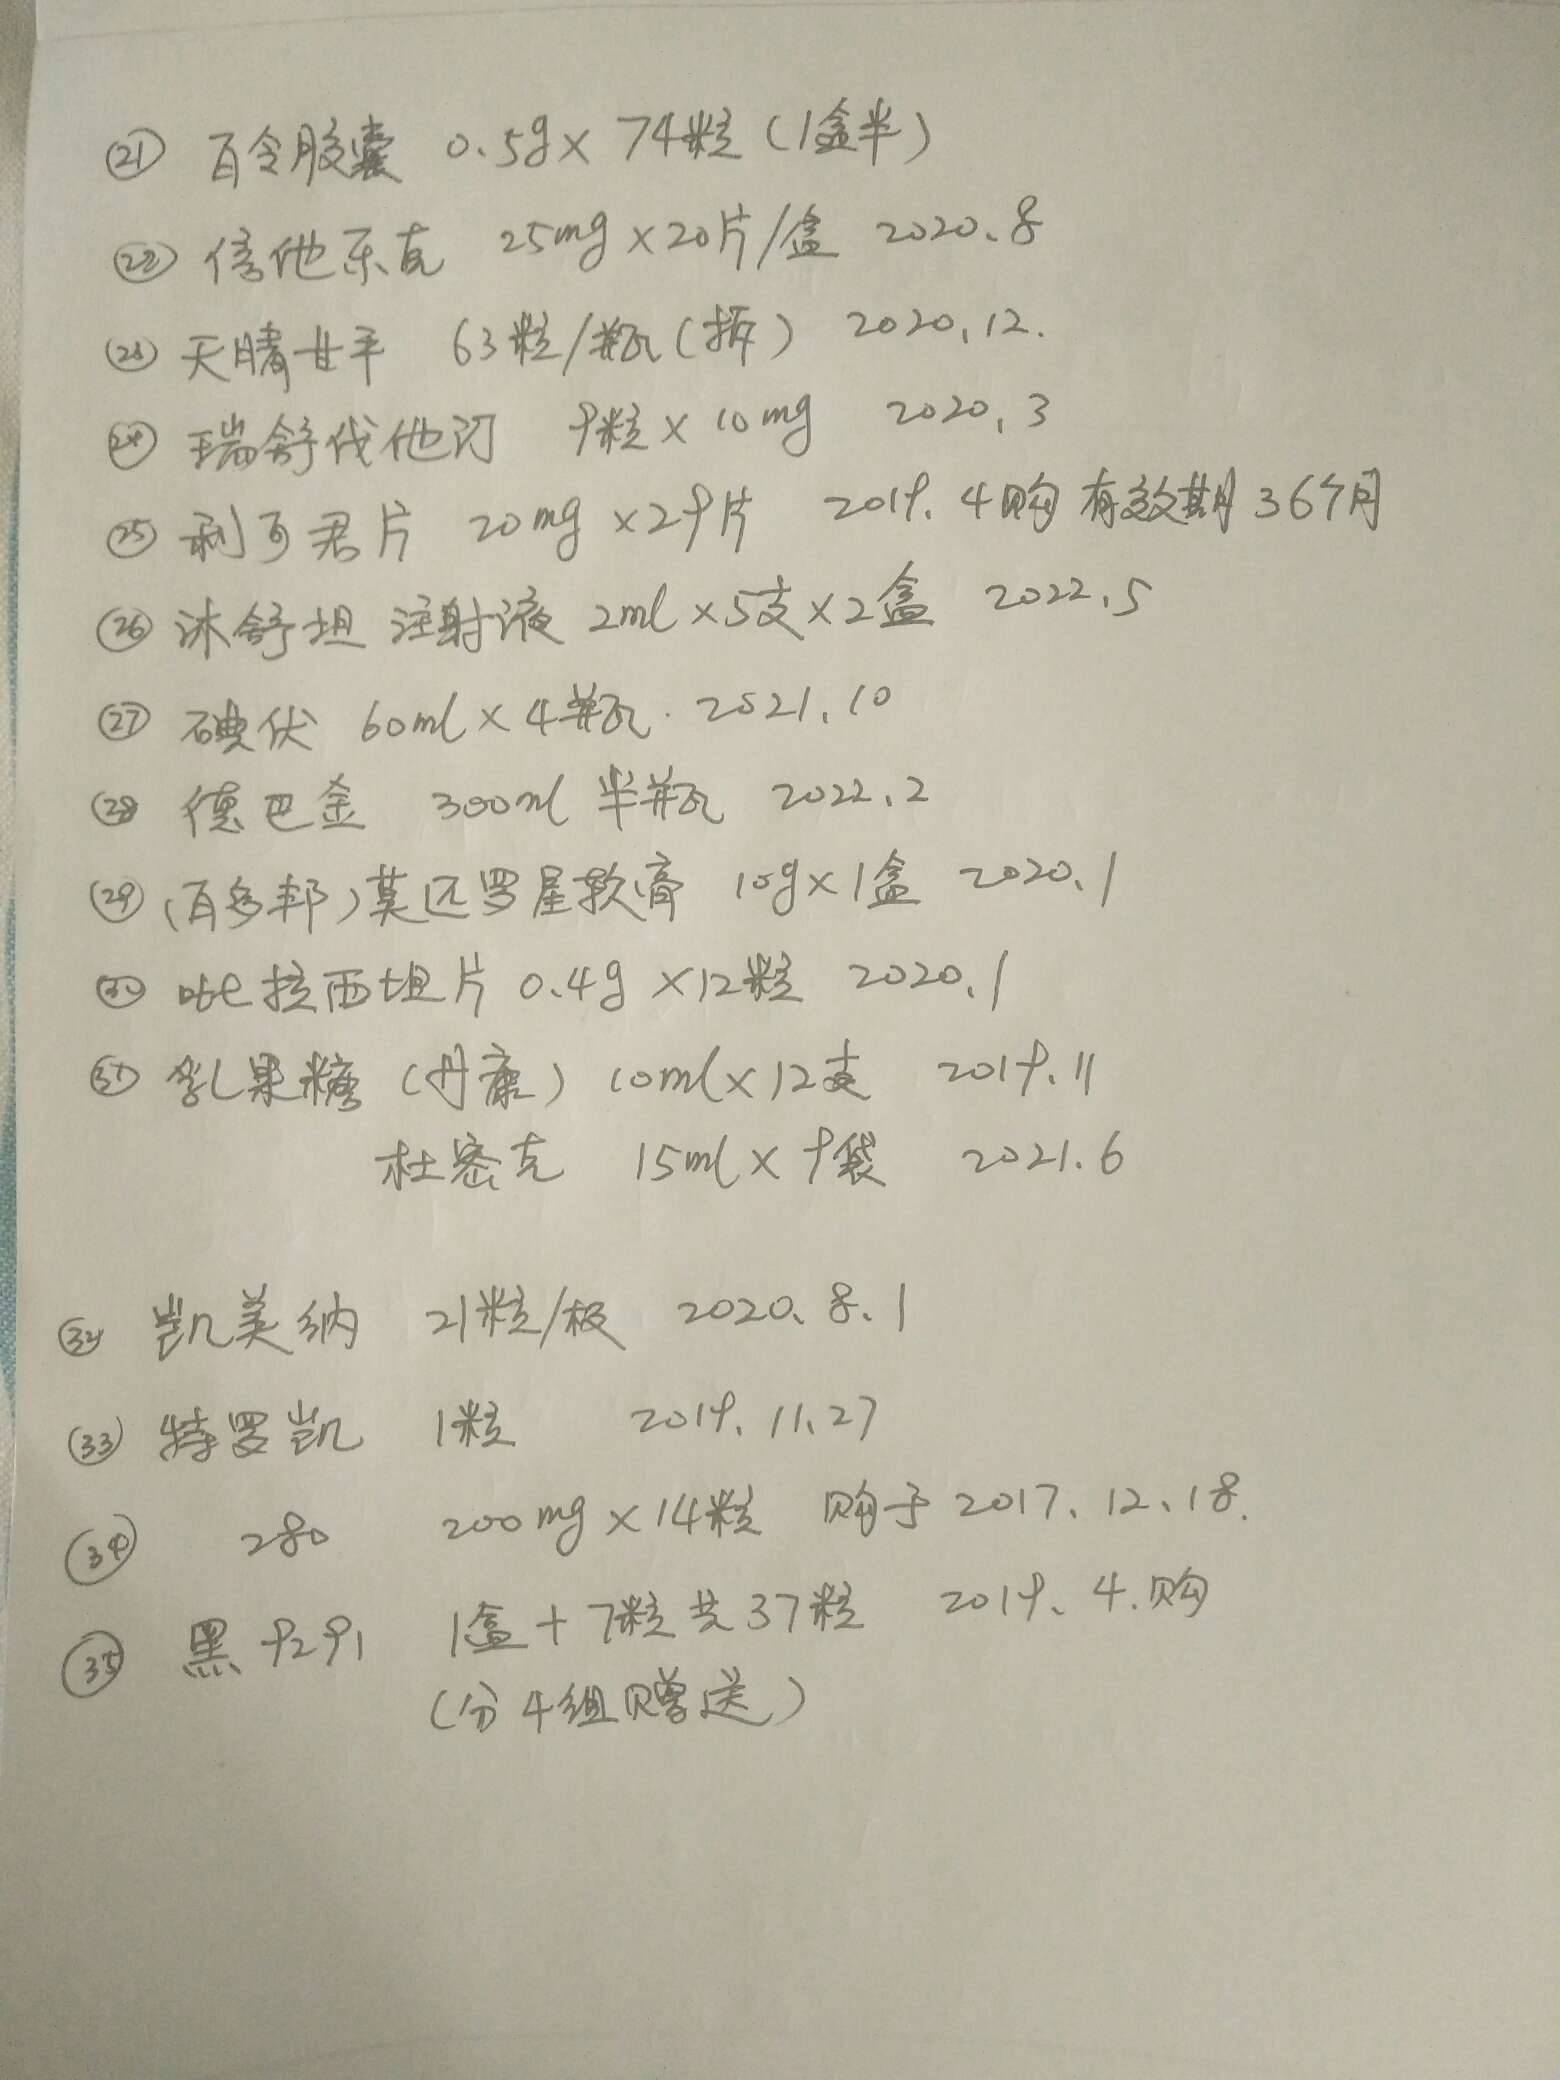 ㉑ 百令胶囊 0.5g×74粒(1盒半)
㉒ 倍他乐克 25mg×20片/盒 2020.8
㉓ 天晴甘平 63粒/瓶(拆) 2020.12.
㉔ 瑞舒伐他汀 9粒×10mg 2020.3
㉕ 利可君片 20mg×29片 2019.4购 有效期36个月
㉖ 沐舒坦 注射液 2ml×5支×2盒 2022.5
㉗ 碘伏 60ml×4瓶. 2021.10
㉘ 德巴金 300ml 半瓶 2022.2
㉙ (百多邦)莫匹罗星软膏 10g×1盒 2020.1
㉚ 吡拉西坦片 0.4g×12粒 2020.1
㉛ 乳果糖(丹康) 10ml×12支 2019.11
杜密克 15ml×9袋 2021.6
㉜ 凯美纳 21粒/板 2020.8.1
㉝ 特罗凯 1粒 2019.11.27
㉞ 280 200mg×14粒 购于2017.12.18.
㉟ 黑9291 1盒+7粒共37粒 2019.4.购
(分4组赠送)